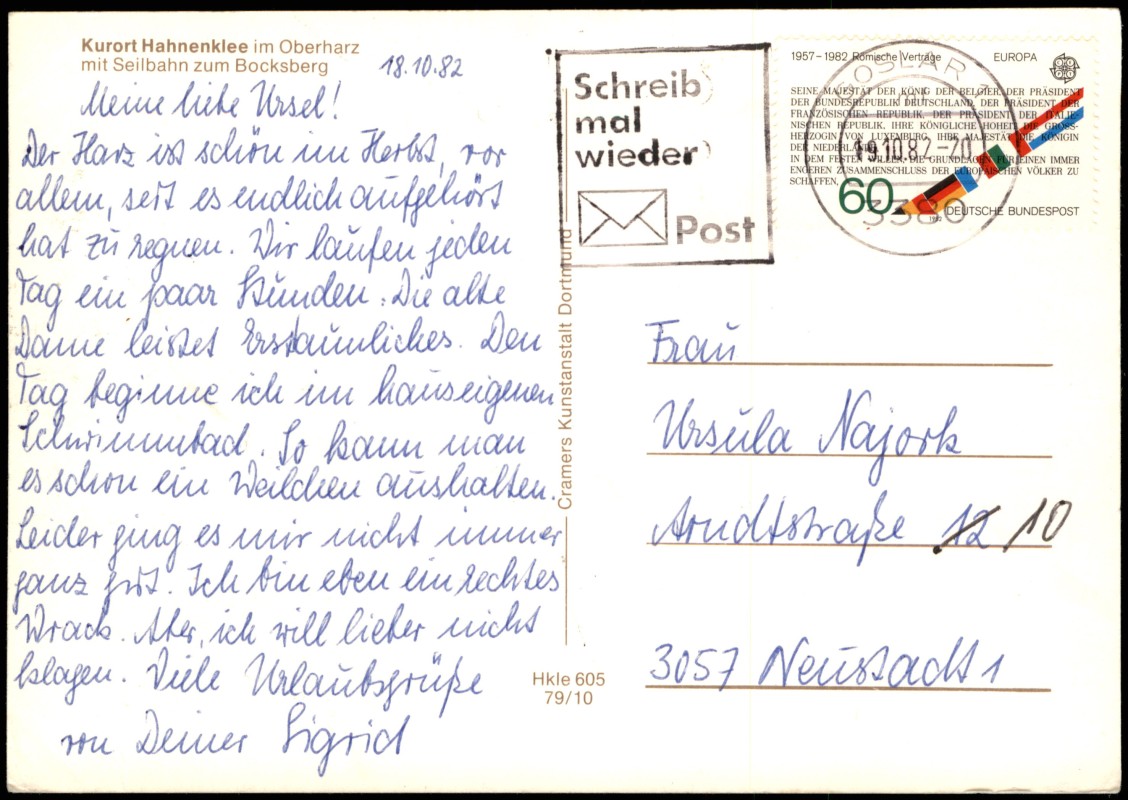 Kurort Hahnenklee im Oberharz
mit Seilbahn zum Bocksberg
18.10.82
Meine liebe Ursel!
Der Harz ist schön im Herbst, vor
allem, seit es endlich aufgehört
hat zu regnen. Wir laufen jeden
Tag ein paar Stunden. Die alte
Dame leistet Erstaunliches. Den
Tag beginne ich im hauseigenen
Schwimmbad. So kann man
es schon ein Weilchen aushalten.
Leider ging es mir nicht immer
ganz gut. Ich bin eben ein rechtes
Wrack. Aber, ich will lieber nicht
klagen. Viele Urlaubsgrüße
von Deiner Sigrid
Cramers Kunstanstalt Dortmund
Hkle 605
79/10
Schreib
mal
wieder
Post
1957–1982 Römische Verträge EUROPA
SEINE MAJESTÄT DER KÖNIG DER BELGIER, DER PRÄSIDENT
DER BUNDESREPUBLIK DEUTSCHLAND, DER PRÄSIDENT DER
FRANZÖSISCHEN REPUBLIK, DER PRÄSIDENT DER ITALIE-
NISCHEN REPUBLIK, IHRE KÖNIGLICHE HOHEIT DIE GROSS-
HERZOGIN VON LUXEMBURG, IHRE MAJESTÄT DIE KÖNIGIN
DER NIEDERLANDE
IN DEM FESTEN WILLEN, DIE GRUNDLAGEN FÜR EINEN IMMER
ENGEREN ZUSAMMENSCHLUSS DER EUROPÄISCHEN VÖLKER ZU
SCHAFFEN,
60
DEUTSCHE BUNDESPOST
1982
GOSLAR
19.10.82-20
3380
Frau
Ursula Najork
Arndtstraße 12 10
3057 Neustadt 1